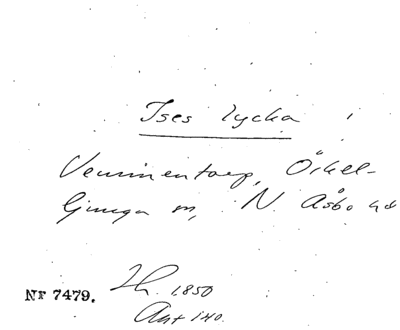 Ises lycka i
Vemmentorp, Örkel-
ljunga sn, N. Åsbo hd
NF 7479. Th. 1,850
Ant 140.